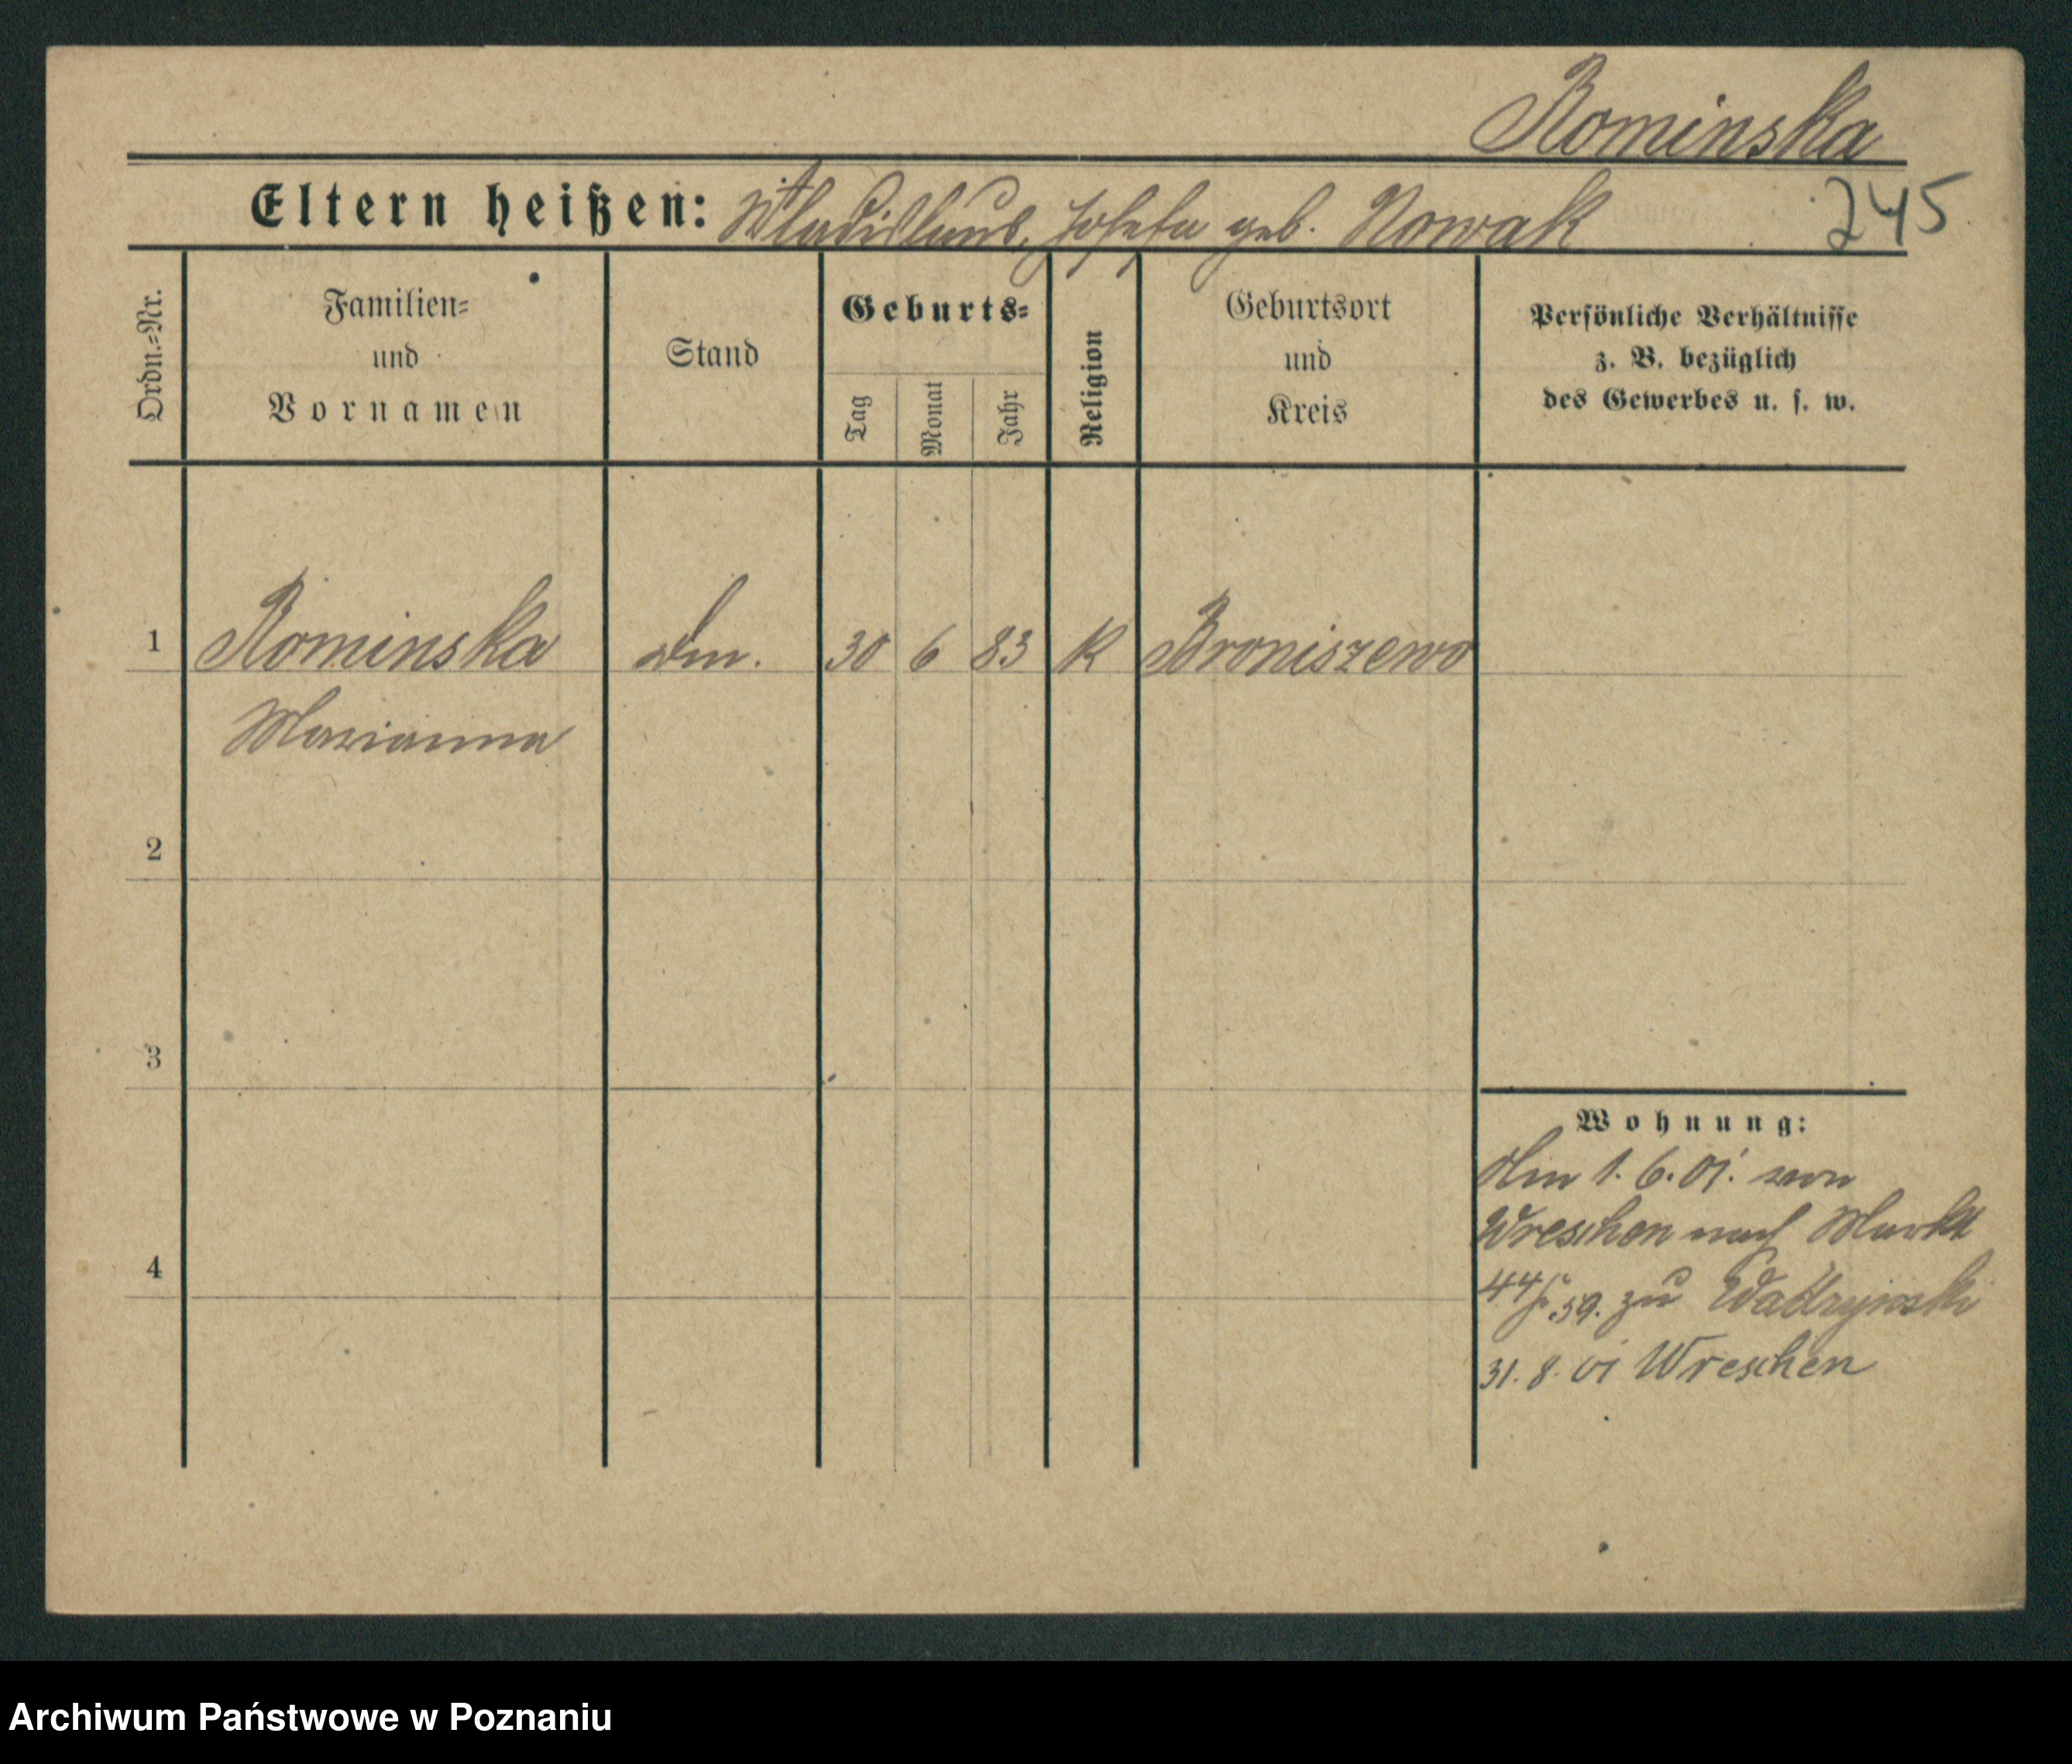 Rominska
Eltern heißen: Wladislaus, Josefa geb. Nowak
245
Ordn.=Nr.
Familien=
und
Vornamen
Stand
Geburts=
Tag
Monat
Jahr
Religion
Geburtsort
und
Kreis
Persönliche Verhältnisse
z. B. bezüglich
des Gewerbes u. s. w.
1 Rominska 30 6 83 K Broniszewo
Marianna
2
3
4
Wohnung:
1. 6. 01. von
Wreschen nach Markt
44/ 59. zu
31. 8. 01 Wreschen
Archiwum Państwowe w Poznaniu